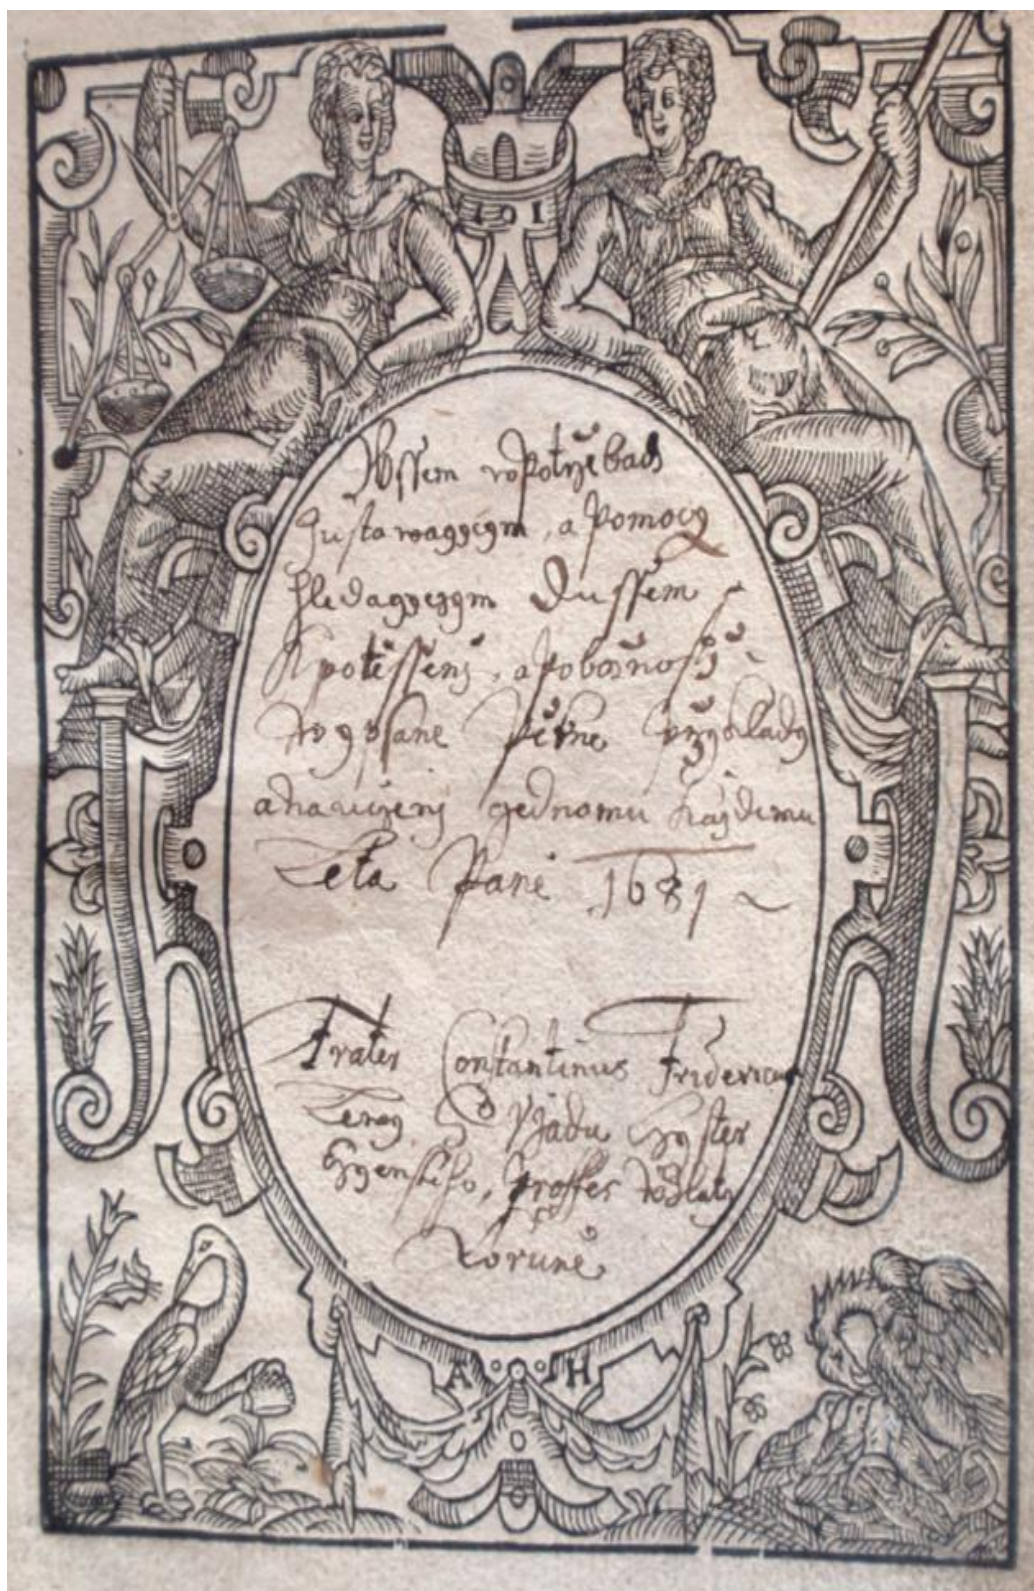 101
Wssem w potřebach
zustawagycym, a Pomocy
hledagyczym Dussem
K potěssenj, a Pobožnosti
wypsane Pěkne Przyklady
a naucženj gednomu každemu
Leta Panie 1681
Frater Constantinus Fridericus
Ržadu Cyster
cyenskeho, Professes w Zlaty
Koruně
A H